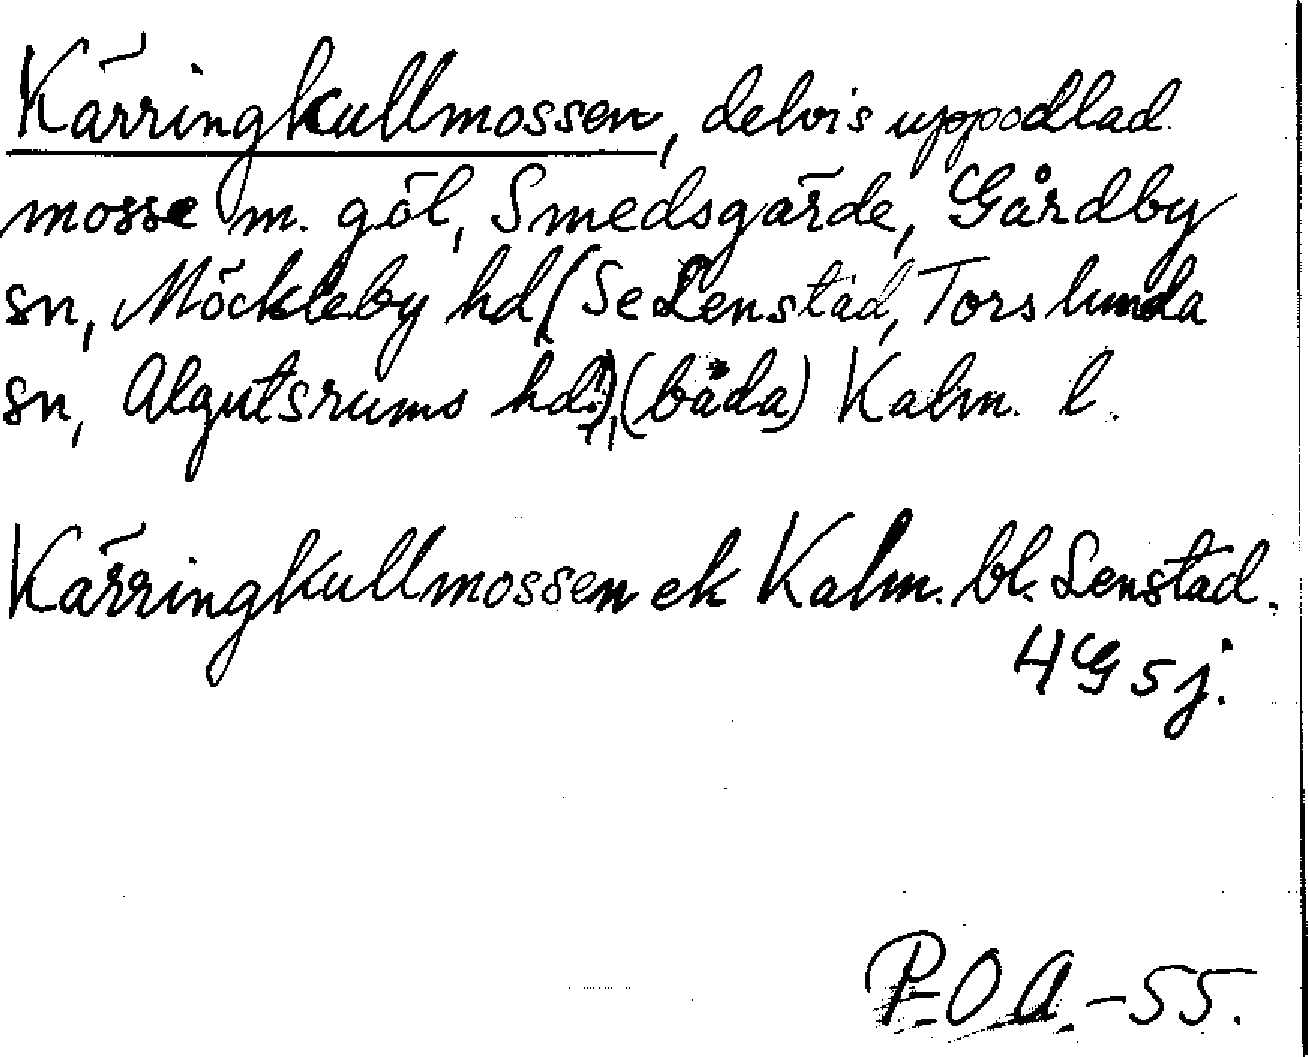 Kärringkullmossen, delvis uppodlad
mosse m. göl, Smedsgärde, Gårdby
sn, Möckleby hd (Se Lenstad, Torslunda
sn, Algutsrums hd.), (båda) Kalm. l.
Kärringkullmossen ek Kalm. bl. Lenstad.
4G5j.
P.O.A.-55.